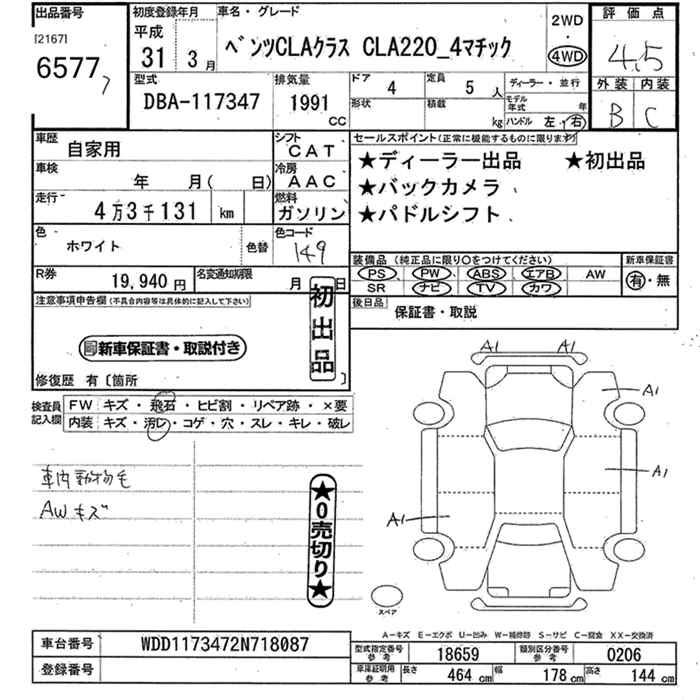 出品番号
[2167]
6577
初度登録年月
平成
31年 3月
車名・グレード
ベンツCLAクラス CLA220_4マチック
2WD
・
4WD
評価点
4.5
外装 内装
B C
型式
DBA-117347
排気量
1991
cc
ドア
4
定員
5人
形状
積載
kg
ディーラー・並行
モデル年式 年
ハンドル 左・右
車歴
自家用
シフト
CAT
車検
年 月( 日)
冷房
AAC
走行
4万3千131 km
燃料
ガソリン
色
ホワイト
色替
色コード
149
R券
19,940円
名変通知期限
月 日
セールスポイント(正常に機能するものに限ります)
★ディーラー出品 ★初出品
★バックカメラ
★パドルシフト
装備品 (純正品に限り○をつけてください)
PS PW ABS エアB AW
SR ナビ TV カワ
新車保証書
有・無
後日品
保証書・取説
注意事項申告欄(不具合内容等は具体的に記入して下さい)
新車保証書・取説付き
初出品
修復歴 有〔箇所 〕
検査員記入欄
FW キズ・飛石・ヒビ割・リペア跡・×要
内装 キズ・汚レ・コゲ・穴・スレ・キレ・破レ
車内動物毛
AWキズ
★0売切り★
A1 A1
A1
A1
A1
スペア
A-キズ E-エクボ U-凹み W-補修跡 S-サビ C-腐食 XX-交換済
車台番号
WDD1173472N718087
登録番号
型式指定番号
参考
18659
類別区分番号
参考
0206
車庫証明用
参考
長さ
464cm
幅
178cm
高さ
144cm